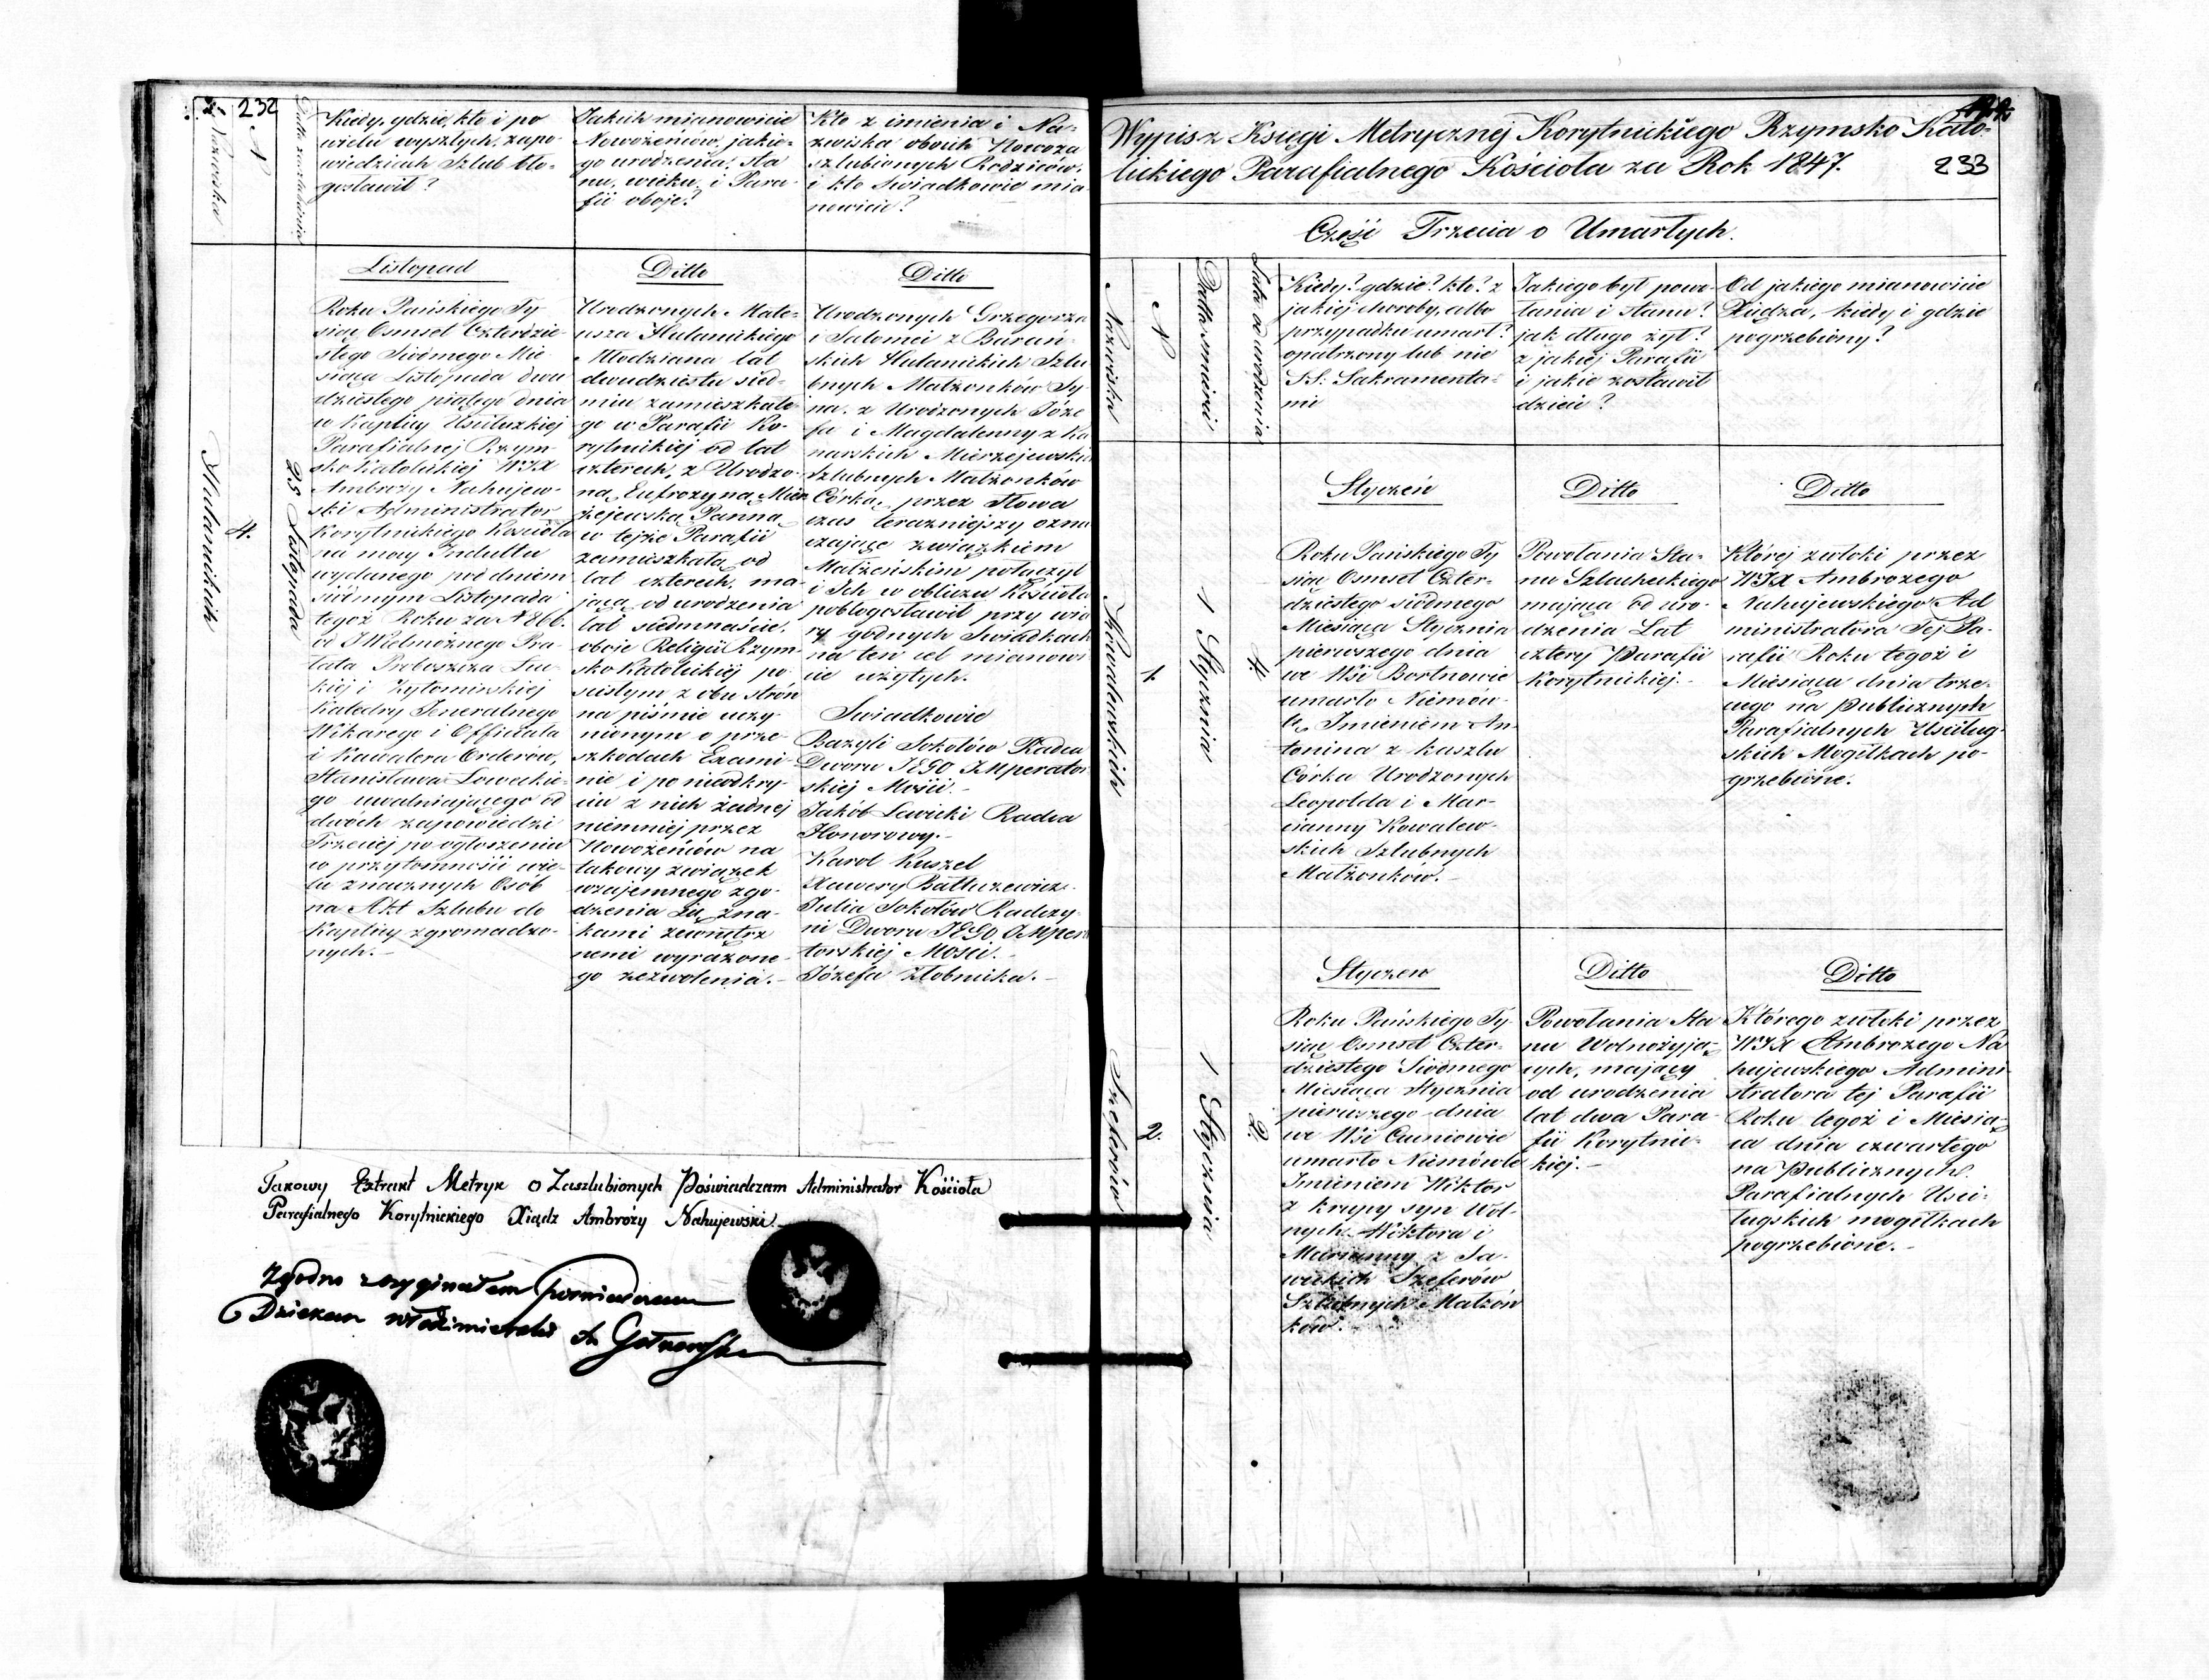 232
Nazwiska
N
Datta zaszlubienia
Kiedy, gdzie, kto i po
wielu wyszłych, zapo-
wiedziach Szlub bło-
gosławił?
Jakich mianowicie
Nowożeńców, jakie-
go urodzenia, sta
nu, wieku, i Para-
fii oboje?
Kto z imienia i Na-
zwiska oboich Nowoza
szlubionych Rodziców,
i kto Swiadkowie mia
nowicie?
Hulanickich
4.
25 Listopada
Listopad
Roku Pańskiego Ty
siąc Osmset Czterdzie-
stego Siódmego Mie
siąca Listopada dwu
dziestego piątego dnia
w Kaplicy Uściłuzkiej
Parafialnej Rzym-
sko Katolickiej WJX
Ambrozy Nahujew-
ski Administrator
Korytnickiego Kościoła
na mocy Indultu
wydanego pod dniem
siódmym Listopada
tegoż Roku za N 866.
od JWielmożnego Pra-
łata Proboszcza Łuc-
kiej i Żytomirskiej
Katedry Jeneralnego
Wikarego i Officiała
i Kawalera Orderów,
Stanisława Lowackie-
go uwalniającego od
dwóch zapowiedzi
Trzeciej po ogłoszeniu
w przytomności wie-
lu znacznych Osób
na Akt Szlubu do
Kaplicy zgromadzo-
nych.-
Ditto
Urodzonych Mate-
usza Hulanickiego
Młodziana lat
dwudziestu sied-
miu zamieszkałe-
go w Parafii Ko-
rytnickiej od lat
czterech, z Urodzo-
ną Eufrozyną Mier
żejewską Panną
w tejże Parafii
zamieszkałą od
lat czterech, ma-
jącą od urodzenia
lat siedmnaście.
oboje Religii Rzym-
sko Katolickiej po
ścisłym z obu strón
na piśmie uczy-
nionym o prze-
szkodach Exami-
nie i po nieodkry-
ciu z nich żadnej
niemniej przez
Nowożeńców na
takowy związek
wzajemnego zgo-
dzenia się zna-
kami zewnętrz
nemi wyrażone-
go zezwolenia.-
Ditto
Urodzonych Grzegorza
i Salomei z Barań-
skich Hulanickich Szlu
bnych Małżonków Sy-
na, z Urodzonych Józe
fa i Magdalenny z Ka
narskich Mierzejewskich
Szlubnych Małżonków
Córką, przez Słowa
czas teraźniejszy ozna
czające związkiem
Małżeńskim połączył
i Ich w obliczu Kościoła
pobłogosławił przy wia
ry godnych Swiadkach
na ten cel mianowi
cie użytych.
Swiadkowie
Bazyli Sokołów Radca
Dworu JEGO IMperator
skiej Mości.-
Jakób Lewicki Radca
Honorowy.-
Karol Kuszel
Xawery Bałtuzewicz
Julia Sokołów Radczy-
ni Dworu JEGO IMpera
torskiej Mości.-
Józefa Złobnicka.-
Takowy Extrakt Metryk o Zaszlubionych Poświadczam Administrator Kościoła
Parafialnego Korytnickiego Xiądz Ambroży Nahujewski
Zgodno z oryginałem poswiadczam
Dziekan Włodzimierski
Wypis z Księgi Metrycznej Korytnickiego Rzymsko Kato-
lickiego Parafialnego Kościoła za Rok 1847.
233
Część Trzecia o Umarłych.
Nazwiska
N
Datta smierci
Lata od urodzenia
Kiedy? gdzie? kto? z
jakiej choroby, albo
przypadku umarł?
opatrzony lub nie
S.S. Sakramenta-
mi
Jakiego był powo-
łania i stanu?
jak długo żył?
z jakiej Parafii
i jakie zostawił
dzieci?
Od jakiego mianowicie
Xiędza, kiedy i gdzie
pogrzebiony?
Kowalewskich
1.
1 Stycznia
4.
Styczeń
Roku Pańskiego Ty
siąc Osmset Czter-
dziestego siódmego
Miesiąca Stycznia
pierwszego dnia
we Wsi Bortnowie
umarło Niemów-
le, Imieniem An-
tonina z kaszlu
Córka Urodzonych
Leopolda i Mar-
cianny Kowalew-
skich Szlubnych
Małżonków.-
Ditto
Powołania Sta-
nu Szlacheckiego
mająca od uro-
dzenia Lat
cztery Parafii
Korytnickiej.-
Ditto
Której zwłoki przez
WJX Ambrożego
Nahujewskiego Ad
ministratora Tej Pa-
rafii Roku tegoż i
Miesiąca dnia trze-
ciego na Publicznych
Parafialnych Uściług-
skich Mogiłkach po-
grzebione.
Szeferów
2.
1 Stycznia
2.
Styczeń
Roku Pańskiego Ty-
siąc Osmset Czter-
dziestego Siódmego
Miesiąca Stycznia
pierwszego dnia
we Wsi Cucniowie
umarło Niemówle
Imieniem Wiktor
z krupy syn Wol-
nych Wiktora i
Marianny z Sa-
wickich Szeferów
Szlubnych Małżón
ków.-
Ditto
Powołania Sta
nu Wolnożyją-
cych, mający
od urodzenia
lat dwa Para-
fii Korytnic-
kiej.-
Ditto
Którego zwłoki przez
WJX Ambrożego Na
hujewskiego Admini
stratora tej Parafii
Roku tegoż i Miesią-
ca dnia czwartego
na Publicznych
Parafialnych Uści-
ługskich mogiłkach
pogrzebione.-